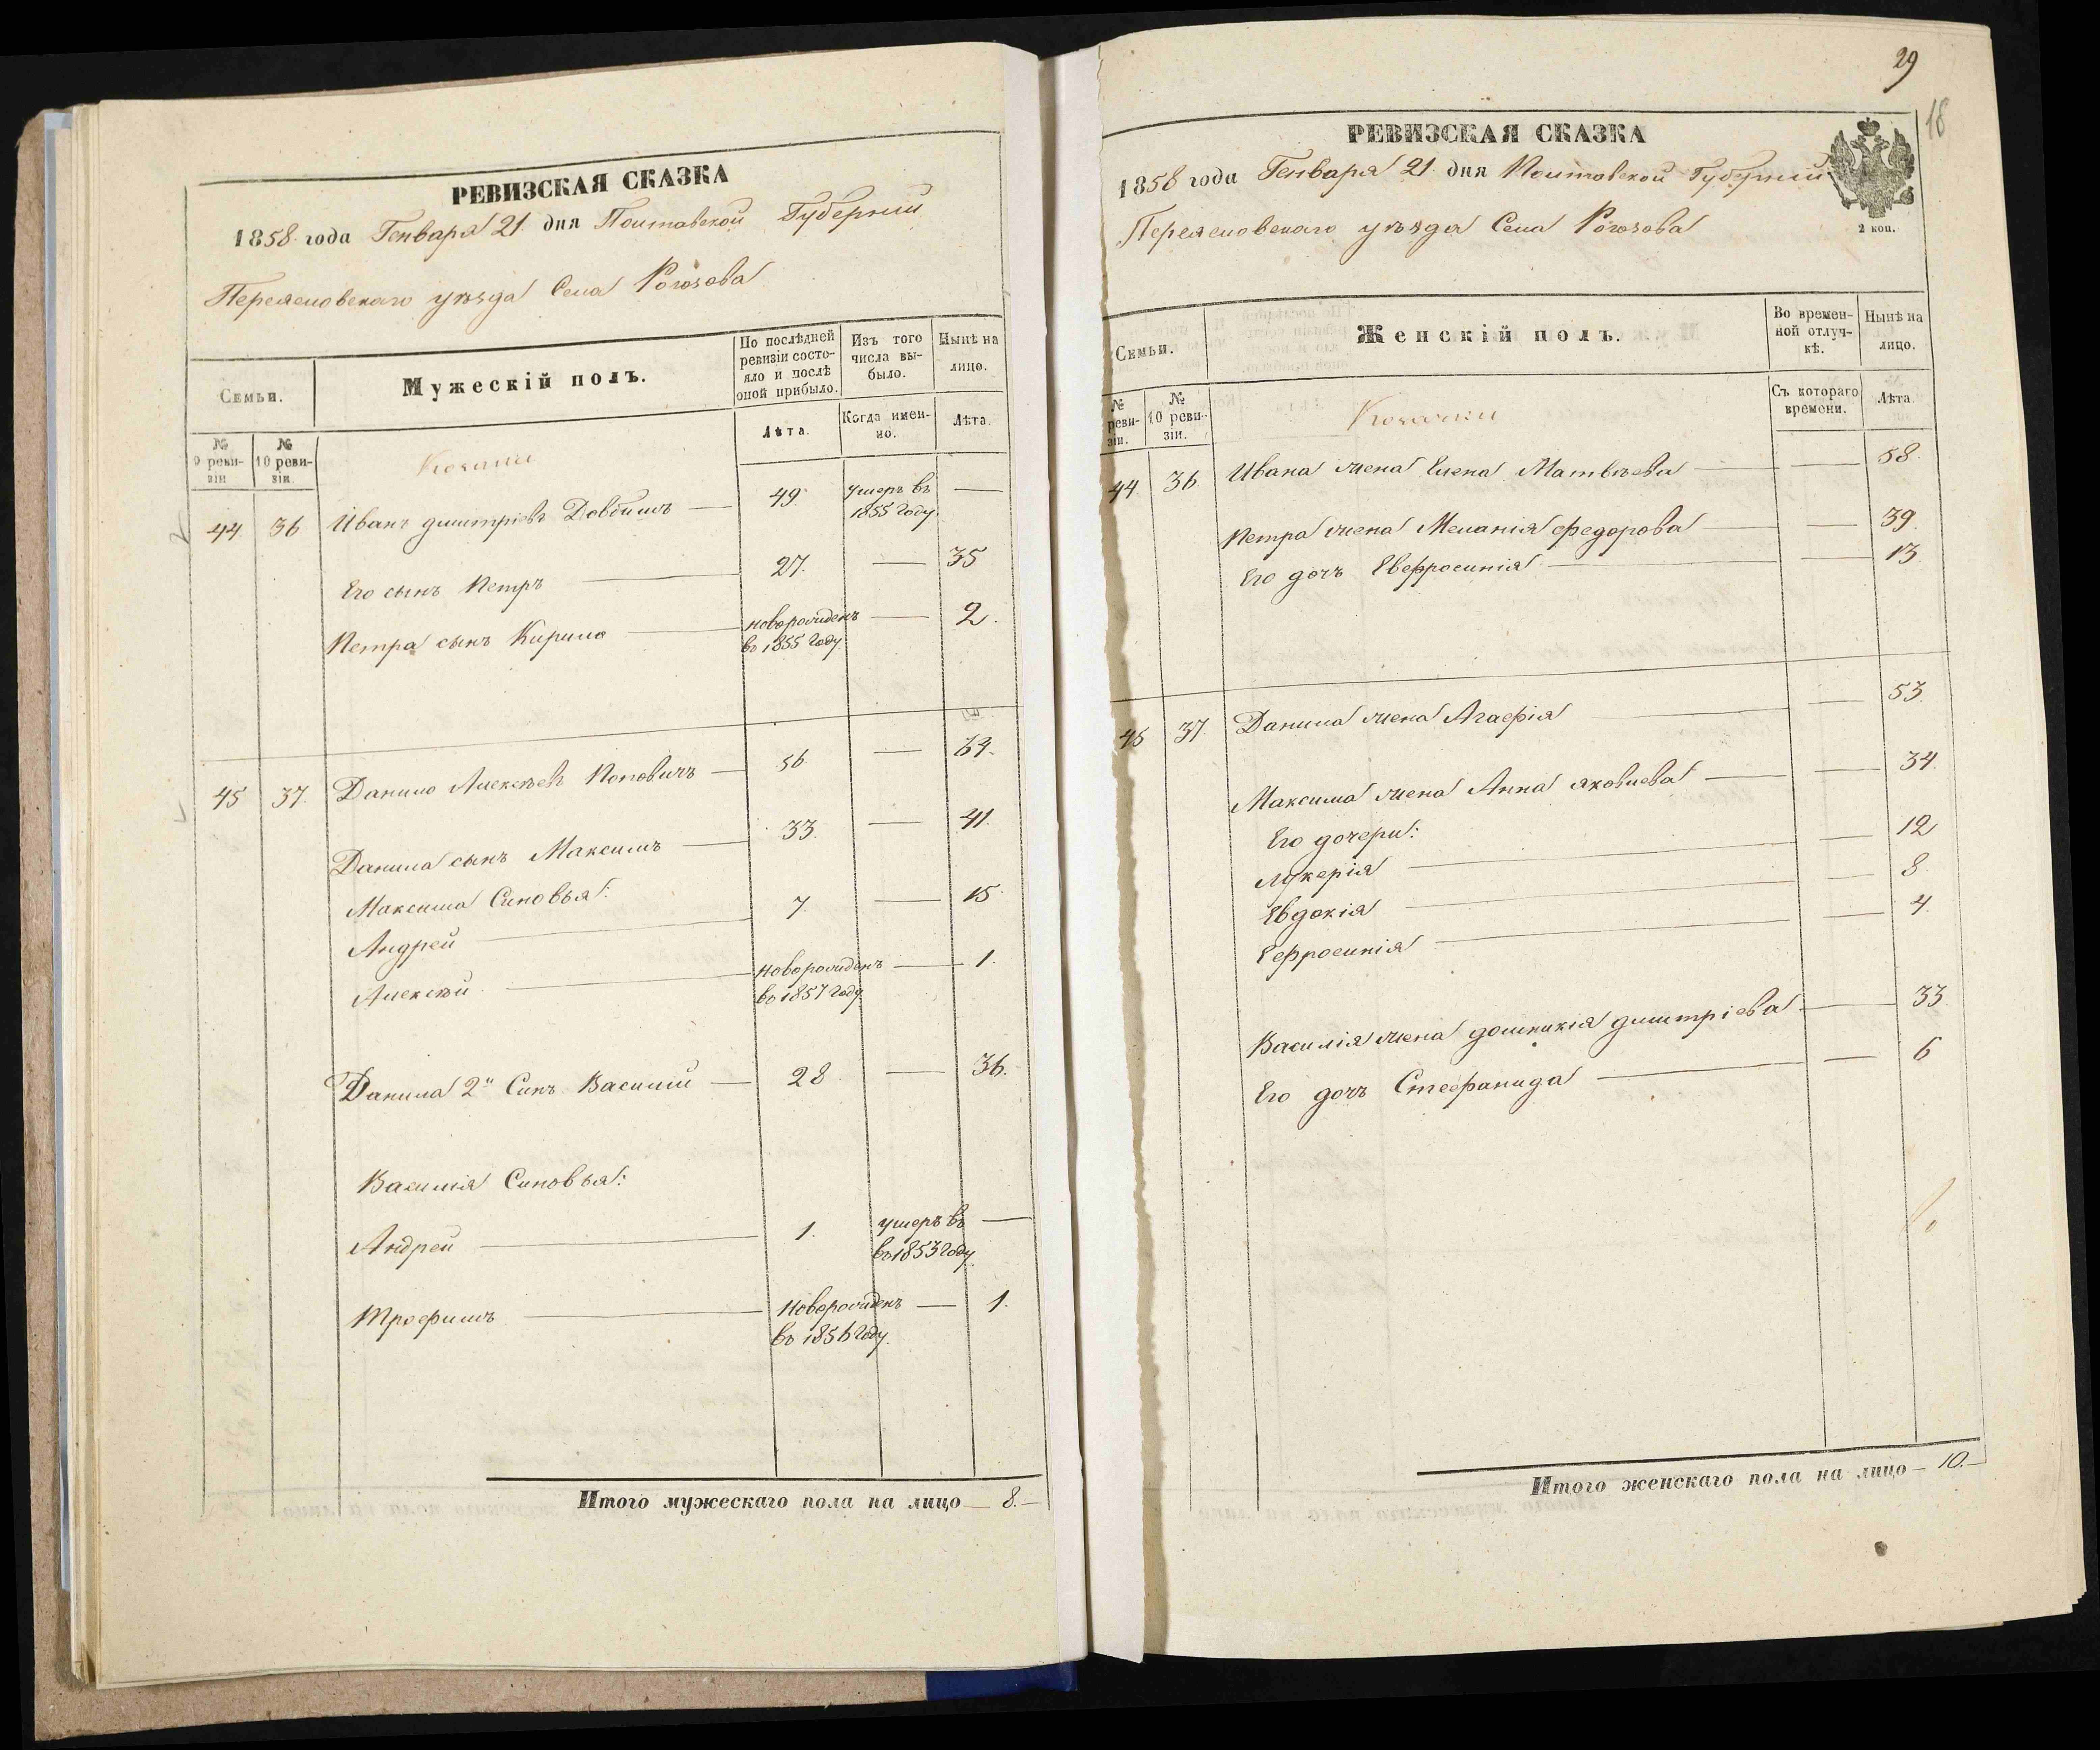 РЕВИЗСКАЯ СКАЗКА
1858 года Генваря 21 дня Полтавской Губернии
Переяславскаго уѣзда Села Рогозова
Семьи.
Мужескій полъ.
По послѣдней ревизіи состояло и послѣ оной прибыло.
Изъ того числа выбыло.
Нынѣ на лицо.
№ 9 ревизіи
№ 10 ревизіи.
Козаки
Лѣта.
Когда именно.
Лѣта.
44 36 Иванъ Дмитріевъ Довбишъ — 49. умеръ въ 1855 году. —
Его сынъ Петръ — 27. — 35
Петра сынъ Кирило — новорожденъ въ 1855 году. — 2.
45 37. Данило Алексѣевъ Поповичъ — 56 — 64.
Данила сынъ Максимъ — 33. — 41.
Максима Синовья:
Андрей — 7. — 15
Алексѣй — новорожденъ въ 1857 году. — 1.
Данила 2й Синъ Василий — 28 — 36.
Василія Синовья:
Андрей — 1. умеръ въ въ 1853 году. —
Трофимъ — новорожденъ въ 1856 году. — 1.
Итого мужескаго пола на лицо — 8. —
29
18
РЕВИЗСКАЯ СКАЗКА
1858 года Генваря 21 дня Полтавской Губернии
Переяславскаго уѣзда Села Рогозова
2 коп.
Семьи.
Женскій полъ.
Во временной отлучкѣ.
Нынѣ на лицо.
№ ревизіи.
№ 10 ревизіи.
Козачки
Съ котораго времени.
Лѣта
44 36 Ивана жена Елена Матвѣева — — 58.
Петра жена Меланія Федорова — — 39.
Его дочъ Евфросинія — — 13
45 37. Данила жена Агафія — — 53.
Максима жена Анна Яковлева — — 34.
Его дочери:
Лукерія — — 12
Евдокія — — 8.
Ефросинія — — 4.
Василія жена Домникія Дмитріева — 33
Его дочъ Стефанида — — 6
Итого женскаго пола на лицо — 10. —